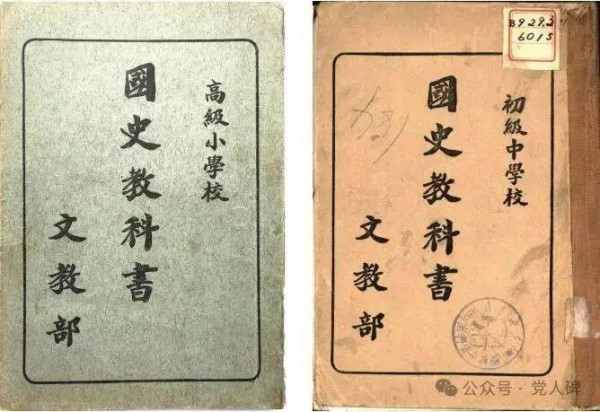 高級小學校
國史教科書
文教部
B929.2
6015
初級中學校
國史教科書
文教部
公众号·党人碑